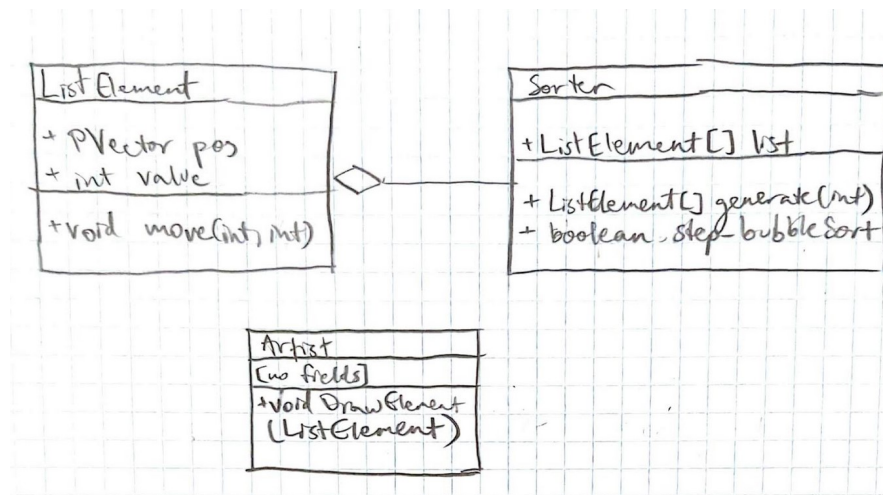 ListElement
+ PVector pos
+ int value
+void move(int, int)
Sorter
+ ListElement[] list
+ ListElement[] generate(int)
+ boolean step_bubbleSort
Artist
[no fields]
+void DrawElement
(ListElement)